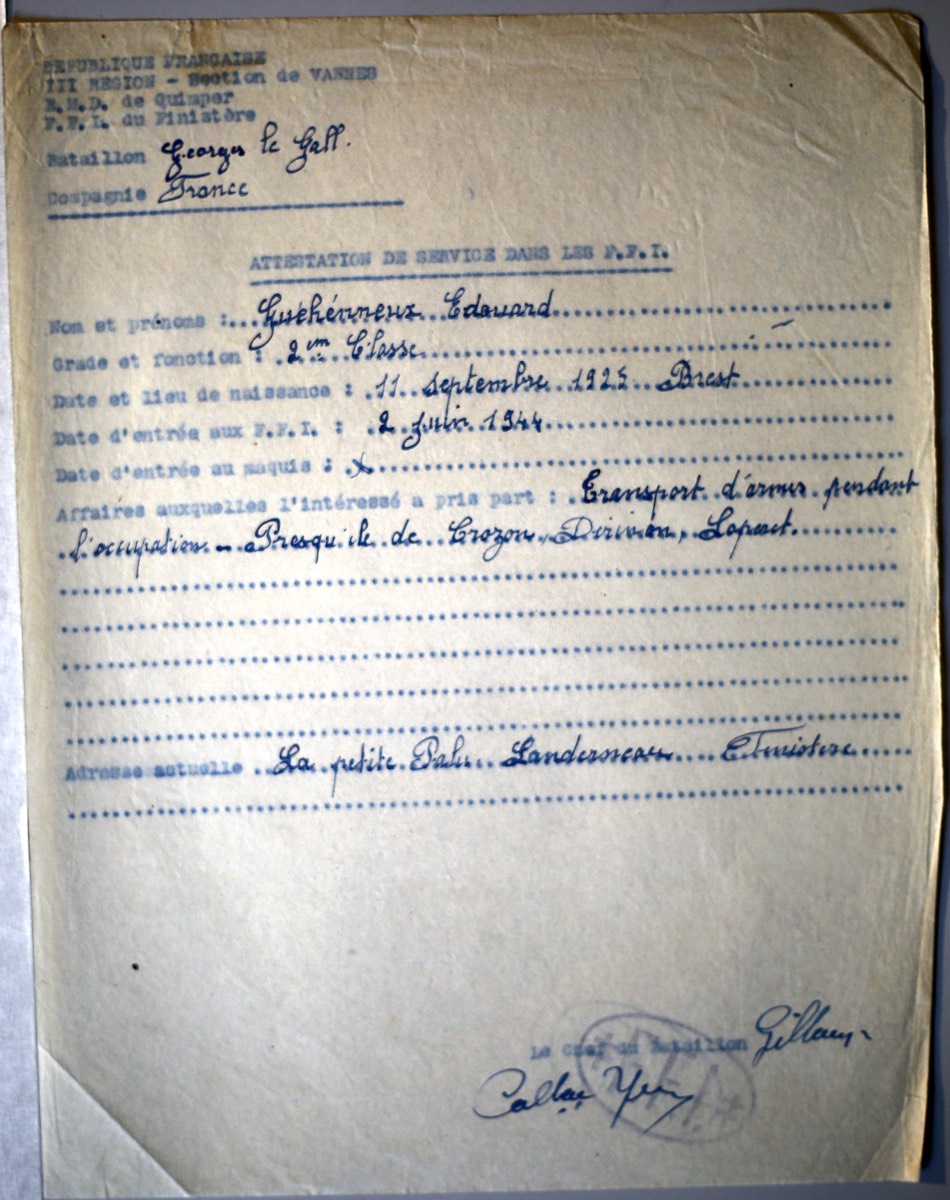 REPUBLIQUE FRANCAISE
III REGION - Section de VANNES
B.M.D. de Quimper
F.F.I. du Finistère
Bataillon Georges le Gall.
Compagnie France
ATTESTATION DE SERVICE DANS LES F.F.I.
Nom et prénoms : Guéhénneux Edouard
Grade et fonction : 2em Classe
Date et lieu de naissance : 11 septembre 1925 Brest
Date d'entrée aux F.F.I. : 2 Juin 1944
Date d'entrée au maquis : x
Affaires auxquelles l'intéressé a pris part : Transport d'armes pendant
l'occupation - Presqu'ile de Crozon, Dirinon, Loperet.
Adresse actuelle La petite Palu Landerneau Finistere
Le Chef de Bataillon